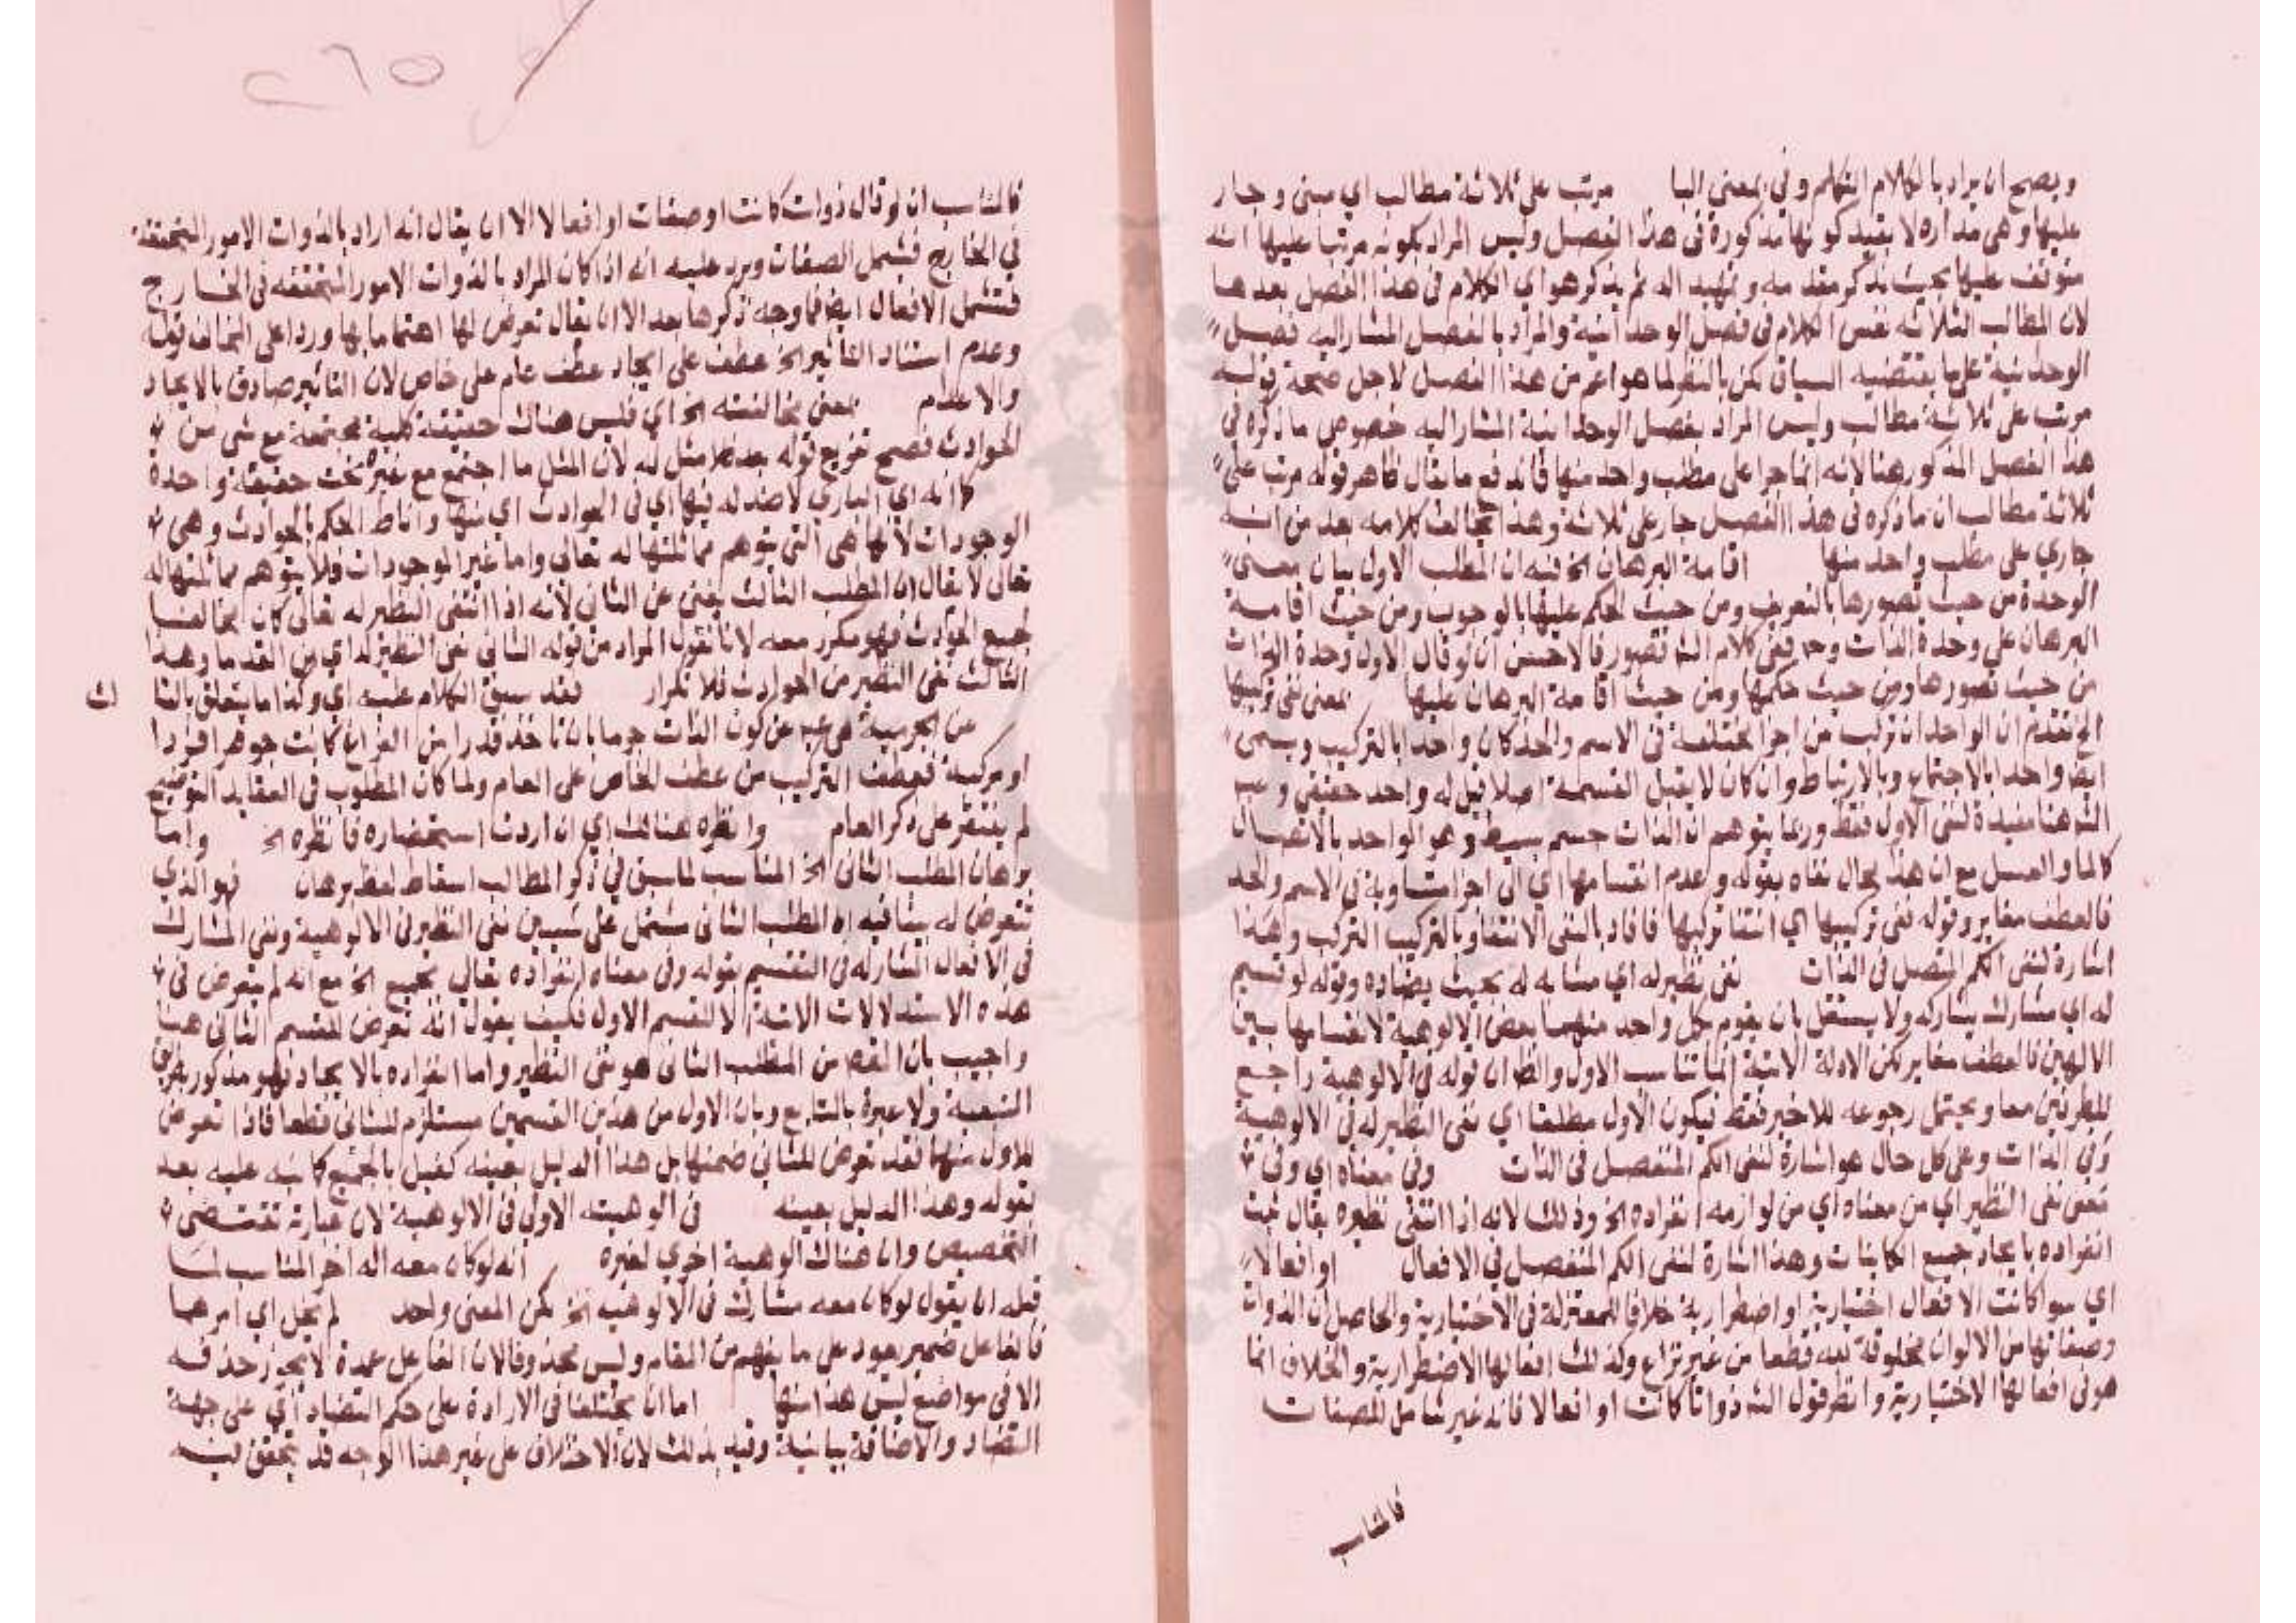 ويصح ان يراد بالكلام التكلم وفي بمعني البا مرتب على ثلاثة مطالب اي مبنى وجار
عليها وهى مداره لا بقيد كونها مذكورة فى هذا الفصل وليس المراد بكونه مرتبا عليها انه
متوقف عليها بحيث تذكر مقدمه وتمهيد اله ثم يذكر هو اي الكلام فى هذا الفصل بعدها
لان المطالب الثلاثه نفس الكلام فى فصل الوحدانية والمراد بالفصل المشار اليه فصل
الوحدانية على ما يقتضيه السياق لكن بالنظر لما هو اعم من هذا الفصل لاجل صحة قوله
مرتب على ثلاثة مطالب وليس المراد بفصل الوحدانية المشار اليه خصوص ما ذكره فى
هذا الفصل المذكور هنا لانه انما جرا على مطلب واحد منها فاندفع ما يقال ظاهر قوله مرتب على
ثلاثة مطالب ان ما ذكره فى هذا الفصل جار على ثلاثة وهذا يخالف كلامه بعد من انه
جاري على مطلب واحد منها اقامة البرهان الخ فيه ان المطلب الاول بيان معنى
الوحدة من حيث تصورها بالتعريف ومن حيث الحكم عليها بالوجوب ومن حيث اقامة
البرهان على وحدة الذات وح ففى كلام الش قصور فالاحسن ان لو قال الاول وحدة الذات
من حيث تصورها ومن حيث حكمها ومن حيث اقامة البرهان عليها بمعنى نفى تركيبها
الخ تقدم ان الواحد ان تركب من اجزا مختلفة فى الاسم والحد كان واحدا بالتركيب ويسمى
ايض واحدا بالاجتماع وبالارتباط وان كان لا يقبل القسمة اصلا قيل له واحد حقيقي وعب
الش هنا مفيدة لنفى الاول فقط وربما يتوهم ان الذات جسم بسيط وهو الواحد بالاتصال
كالما والعسل مع ان هذا محال نفاه بقوله وعدم انقسامها اي الى اجزا متساوية فى الاسم والحد
فالعطف مغاير وقوله نفى تركيبها اي انتفا تركبها فافاد بالنفى الانتفا وبالتركيب التركب وهذا
اشارة لنفى الكم المتصل فى الذات نفى نظير له اي مشابه له بحيث يضاده وقوله او قسيم
له اي مشارك يشاركه ولا يستقل بان يقوم بكل واحد منهما بعض الالوهية لانقسامها بين
الالهين فالعطف مغاير لكن الادلة الاتية انما تناسب الاول والظ ان قوله فى الالوهية راجع
للطرفين معا ويحتمل رجوعه للاخير فقط فيكون الاول مطلقا اي نفى النظير له فى الالوهية
وفي الذات وعلى كل حال هو اشارة لنفى الكم المنفصل فى الذات وفى معناه اي وفى
معنى نفى النظير اي من معناه اي من لوازمه انفراده الخ وذلك لانه اذا انتفى نظيره يقال ثبت
انفراده بايجاد جميع الكاينات وهذا اشارة لنفى الكم المنفصل في الافعال او افعالا
اي سوا كانت الافعال اختيارية او اضطرارية خلافا للمعتزلة فى الاختيارية والحاصل ان الذوات
وصفاتها من الالوان مخلوقة لله قطعا من غير نزاع وكذلك افعالها الاضطرارية والخلاف انما
هو فى افعالها الاختيارية وانظر قول الش ذواتا كانت او افعالا فانه غير شامل للصفات
فالمناسب
٢٦٥
فالمناسب ان لو قال ذوات كانت او صفات او افعالا الا ان يقال انه اراد بالذوات الامور المتحققة
في الخارج فيشمل الصفات ويرد عليه انه اذا كان المراد بالذوات الامور المتحققه فى الخارج
فتشمل الافعال ايض فما وجه ذكرها بعد الا ان يقال تعرض لها اهتماما بها وردا على المخالف قوله
وعدم استناد التاثير الخ عطف على ايجاد عطف عام على خاص لان التاثير صادق بالايجاد
والاعدام بمعنى مخالفته الخ اي فليس هناك حقيقة كلية مجتمعة مع شى من
الحوادث فصح تفريع قوله بعد فلا مثل له لان المثل ما اجتمع مع غيره تحت حقيقة واحدة
كما انه اي البارى لا ضد له فيها اي فى الحوادث اي منها واناط الحكم بالحوادث وهى
الموجودات لانها هى التى يتوهم مماثلتها له تعالى واما غير الموجودات فلا يتوهم مماثلتها له
تعالى لا يقال ان المطلب الثالث يغنى عن الثانى لانه اذا انتفى النظير له تعالى كان مخالفا
لجميع الحوادث فهو مكرر معه لانا نقول المراد من قوله الثانى نفى النظير له اي من القدما وهذا
الثالث نفى النظير من الحوادث فلا تكرار فقد سبق الكلام عليه اي وكذا ما يتعلق بالثا لث
عن الجرمية هى عب عن كون الذات جرما بان تاخذ قدرا من الفراغ كانت جوهرا فردا
او مركبة فعطف التركيب من عطف الخاص على العام ولما كان المطلوب فى العقايد التوضيح
لم يقتصر على ذكر العام وانظره هنالك اي ان اردت استحضاره فانظره الخ واما
برهان المطلب الثانى الخ المناسب لما سبق في ذكر المطالب اسقاط لفظ برهان فهو الذي
تتعرض له بيانيه ان المطلب الثانى مشتمل على شيين نفى النظير فى الالوهية ونفى المشارك
فى الافعال المشار له فى التقسيم بقوله وفى معناه انفراده تعالى بجميع الخ مع انه لم يتعرض فى
هذه الاستدلالات الاتية الا للقسم الاول فكيف يقول انه تعرض للقسم الثانى هنا
واجيب بان القصد من المطلب الثانى هو نفى النظير واما انفراده بالايجاد فهو مذكور بطريق
التبعية ولا عبرة بالتابع وبان الاول من هذين القسمين مستلزم للثانى قطعا فاذا تعرض
للاول منهما فقد تعرض للثانى ضمنها بل هذا الدليل بعينه كفيل بالجميع كما نبه عليه بعد
بقوله وهذا الدليل بعينه فى الوهيته الاولى فى الالوهية لان عبارته تقتضى
التخصيص وان هناك الوهية اخري لغيره انه لو كان معه اله اخر المناسب لما
قبله ان يقول لو كان معه مشارك فى الالوهية الخ لكن المعنى واحد لم يخل اي امرهما
فالفاعل ضمير يعود على ما يفهم من المقام وليس محذوفا لان الفاعل عمدة لا يجوز حذفه
الا فى مواضع ليس هذا منها اما ان يختلفا فى الارادة على حكم التضاد اي على جهة
التضاد والاضافة بيانية وقيد بذلك لان الاختلاف على غير هذا الوجه قد يتحقق فيه